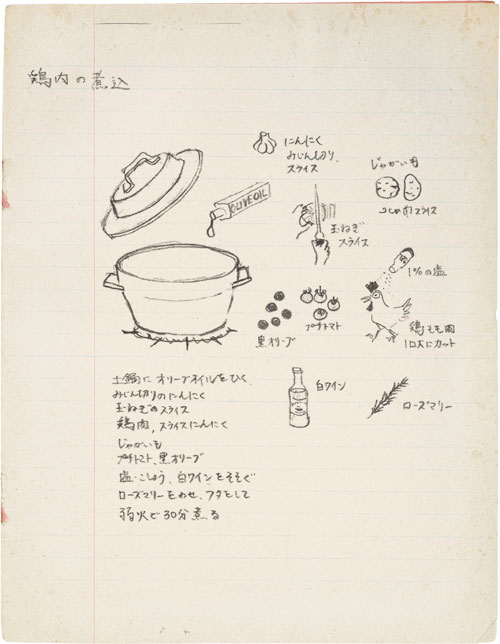 鶏肉の煮込
にんにく
みじん切り、
スライス
じゃがいも
スライス
OLIVE OIL
玉ねぎ
スライス
1%の塩
黒オリーブ
プチトマト
鶏もも肉
1口大にカット
白ワイン
ローズマリー
土鍋にオリーブオイルをひく
みじん切りのにんにく
玉ねぎのスライス
鶏肉、スライスにんにく
じゃがいも
プチトマト、黒オリーブ
塩・こしょう、白ワインをそそぐ
ローズマリーをのせ、フタをして
弱火で30分煮る